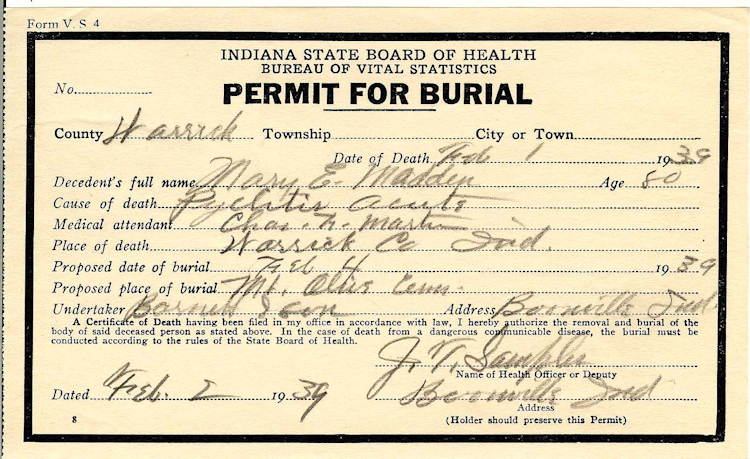 Form V. S. 4
INDIANA STATE BOARD OF HEALTH
BUREAU OF VITAL STATISTICS
No.
PERMIT FOR BURIAL
County Warrick Township City or Town
Date of Death Feb 1 1939
Decedent's full name Mary E. Madden Age 80
Cause of death Pyelitis acute
Medical attendant Chas. N. Martin
Place of death Warrick Co Ind.
Proposed date of burial Feb 4 1939
Proposed place of burial Mt. Cem.
Undertaker & Son Address Boonville Ind
A Certificate of Death having been filed in my office in accordance with law, I hereby authorize the removal and burial of the
body of said deceased person as stated above. In the case of death from a dangerous communicable disease, the burial must be
conducted according to the rules of the State Board of Health.
J. T. Samples
Name of Health Officer or Deputy
Dated Feb. 2 1939 Boonville Ind
Address
8 (Holder should preserve this Permit)